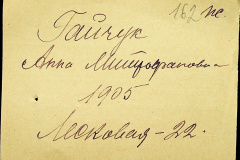 162 пе.
Гайчук
Анна Митрофановна
1905
Лесковая - 22.